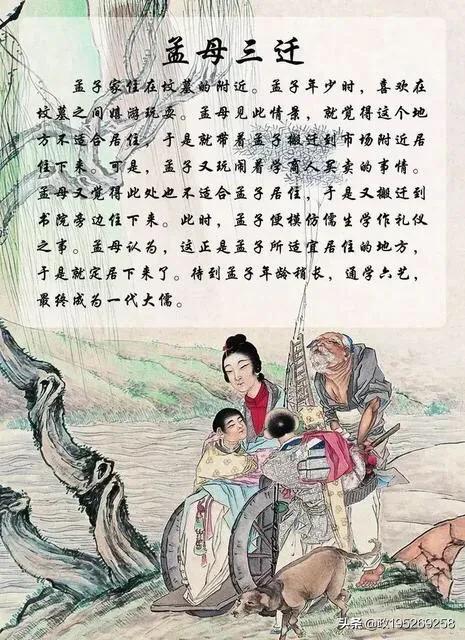 孟母三迁
孟子家住在坟墓的附近。孟子年少时，喜欢在
坟墓之间嬉游玩耍。孟母见此情景，就觉得这个地
方不适合居住，于是就带着孟子搬迁到市场附近居
住下来。可是，孟子又玩闹着学商人买卖的事情。
孟母又觉得此处也不适合孟子居住，于是又搬迁到
书院旁边住下来。此时，孟子便模仿儒生学作礼仪
之事。孟母认为，这正是孟子所适宜居住的地方，
于是就定居下来了。待到孟子年龄稍长，通学六艺，
最终成为一代大儒。
头条 @政195269258